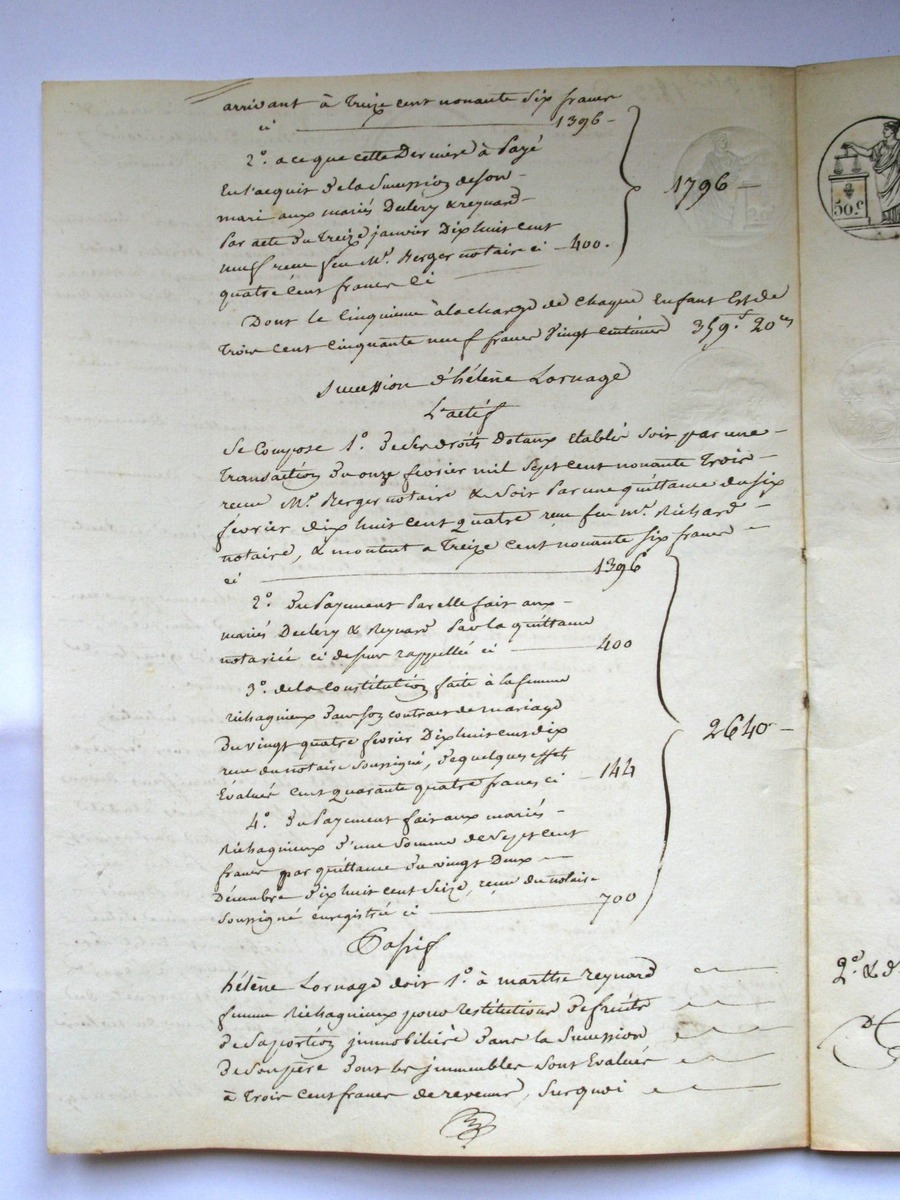 arrivant à Treize cent nonante Six francs
ci 1396 -
2° a ce que cette Derniere à Payé
En l'acquit De la Succession de son -
mari aux mariés Declery & reynard -
Par acte Du Treize janvier Dix huit cent
neuf recu feu Me. Berger notaire ci - 400.
quatre Cent francs Ci
1796 -
Dont le Cinquieme à la charge de Chaque Enfant Est de
Trois Cent Cinquante neuf francs Vingt Centimes 359.f 20ces
Succession d'hélène Lornage
L'actif
Se Compose 1°. De Ses droits Dotaux Etablis Soit par une -
Transaction Du onze fevrier mil Sept cent nonante Trois -
recue Me. Berger notaire & Soit Par une quittance du Six
fevrier dix huit cent quatre recu feu me. Richard -
notaire, & montent a Treize Cent nonante Six francs -
ci 1396
2°. Du Payement Par elle fait aux -
mariés Declery & Reynard Par la quittance
notariée ci dessus rappellée ci 400
3°. de la Constitution faite à la femme
Richagnieux Dans son contrat de mariage
Du vingt quatre fevrier Dix huit cent dix
recu du notaire Soussigné, De quelques effets
Evalués Cent quarante quatre francs ci - 144
2640 -
4°. Du Payement fait aux mariés -
Richagnieux D'une Somme de Sept cent
francs par quittance Du vingt Deux -
Decembre Dix huit cent Seize, recue du notaire
Soussigné enregistrée ci 700
Passif
hélène Lornage doit 1°. à marthe reynard
femme Richagnieux pour Restitutions De fruits
de Sa portion jmmobilière Dans la Succession
de Son père Dont les jmmeubles Sont Evalués
à Trois Cent francs de revenus, Surquoi
50c
2° & d